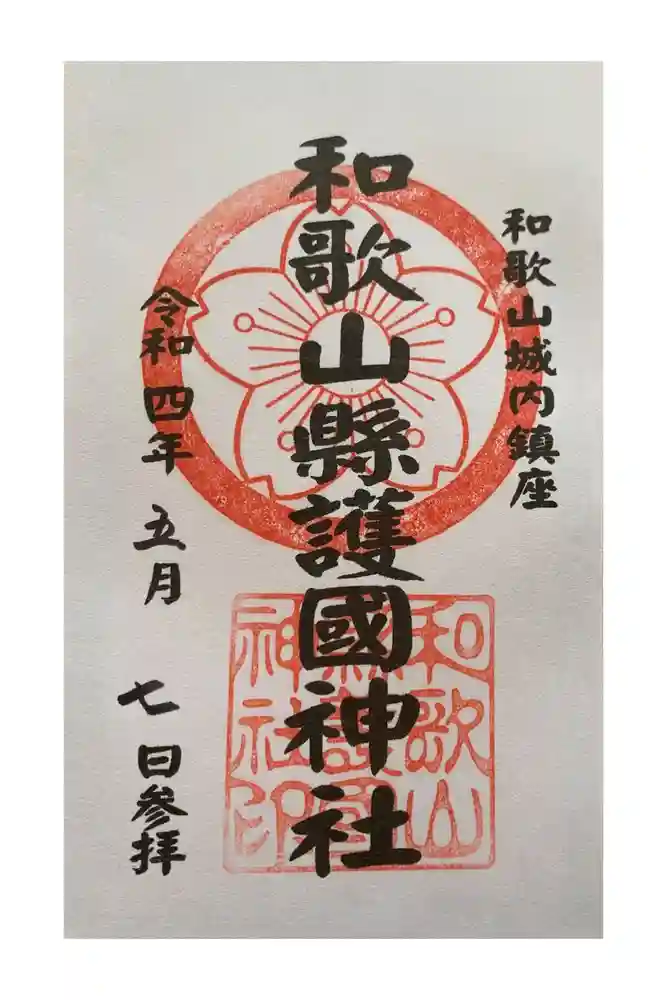 和歌山城内鎮座
和歌山縣護國神社
令和四年 五月 七日参拝
和歌山
縣護國
神社印